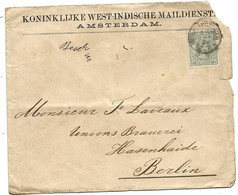 KONINKLIJKE WEST-INDISCHE MAILDIENST.
AMSTERDAM.
Monsieur F. Laveaux
Unions Brauerei
Hasenhaide
Berlin